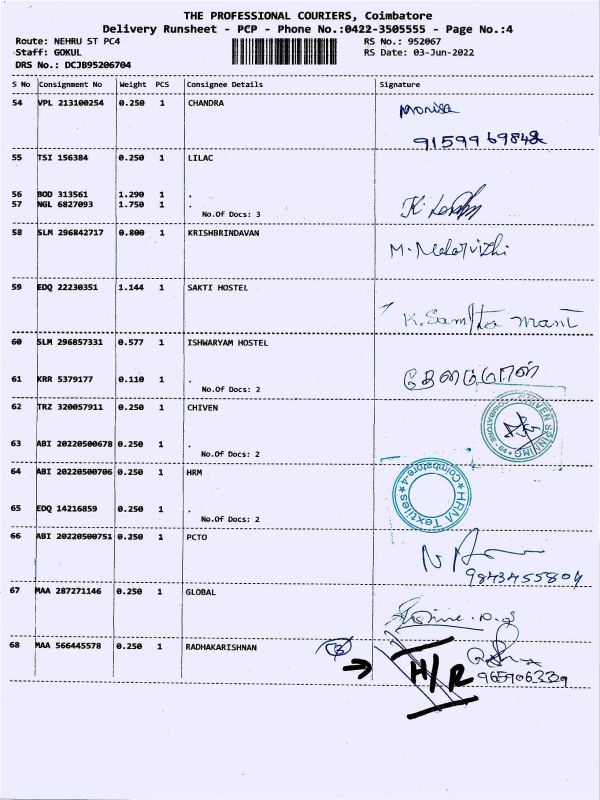 THE PROFESSIONAL COURIERS, Coimbatore
Delivery Runsheet - PCP - Phone No.:0422-3505555 - Page No.:4
Route: NEHRU ST PC4 RS No.: 952067
Staff: GOKUL RS Date: 03-Jun-2022
DRS No.: DCJB95206704
S No Consignment No Weight PCS Consignee Details Signature
54 VPL 213100254 0.250 1 CHANDRA Monisa
9159969848
55 TSI 156384 0.250 1 LILAC
56 BOD 313561 1.290 1 .
57 NGL 6827093 1.750 1 .
No.Of Docs: 3
58 SLM 296842717 0.800 1 KRISHBRINDAVAN
M. Malarvizhi
59 EDQ 22230351 1.144 1 SAKTI HOSTEL
60 SLM 296857331 0.577 1 ISHWARYAM HOSTEL
61 KRR 5379177 0.110 1 .
No.Of Docs: 2
62 TRZ 320057911 0.250 1 CHIVEN
63 ABI 20220500678 0.250 1 .
No.Of Docs: 2
64 ABI 20220500706 0.250 1 HRM
HRM Textiles
Coimbatore-4
65 EDQ 14216859 0.250 1 .
No.Of Docs: 2
66 ABI 20220500751 0.250 1 PCTO
9843455804
67 MAA 287271146 0.250 1 GLOBAL
68 MAA 566445578 0.250 1 RADHAKARISHNAN
H/R